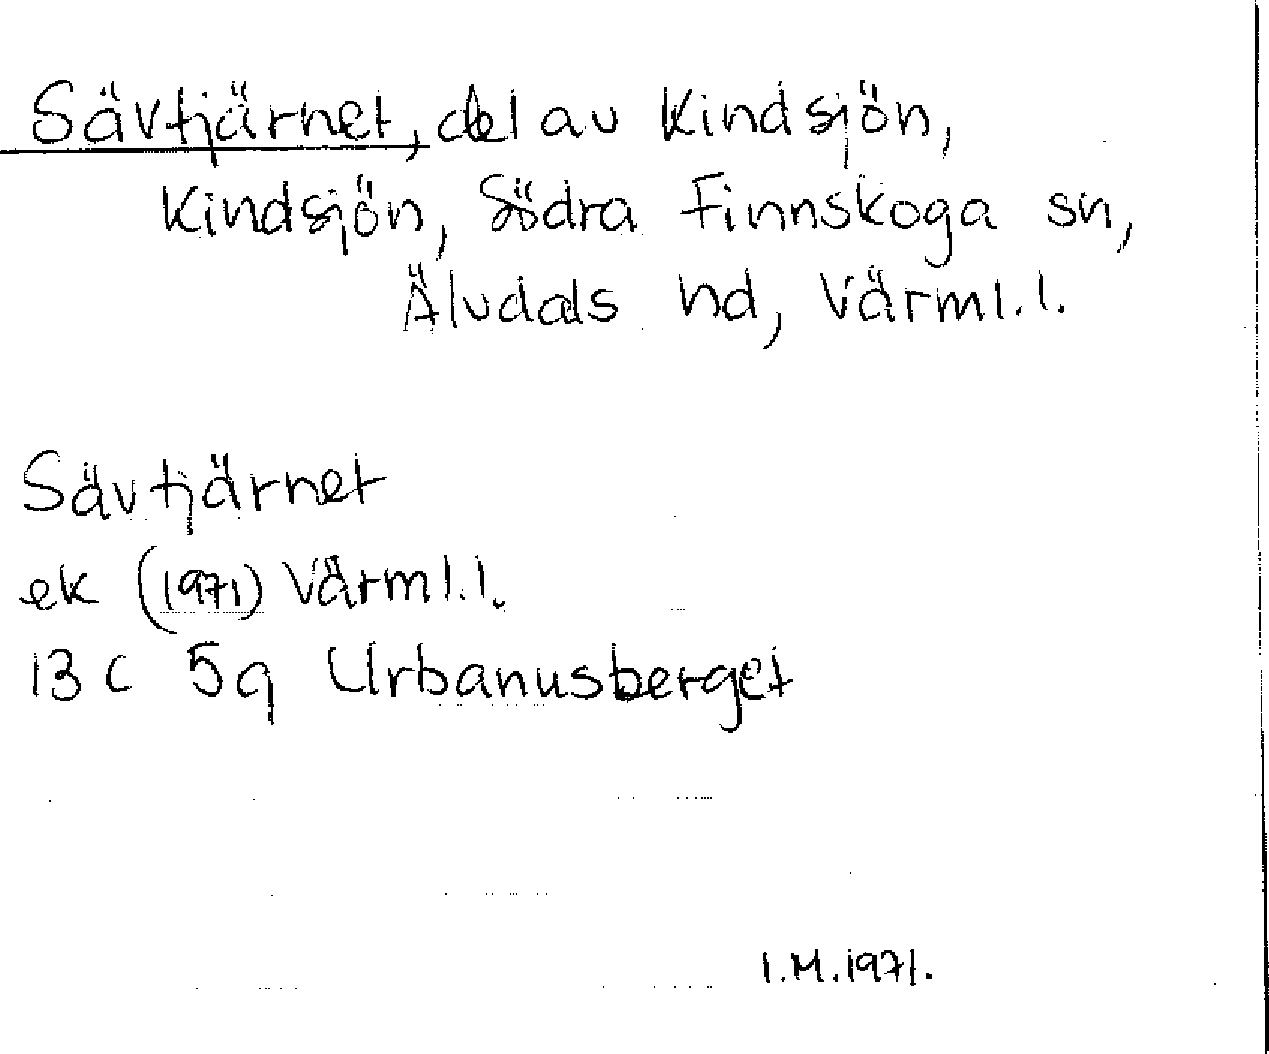 Sävtjärnet, del av Kindsjön,
Kindsjön, Södra Finnskoga sn,
Älvdals hd, Värml.l.
Sävtjärnet
ek (1971) Värml.l.
13 C 5g Urbanusberget
I.M.1971.